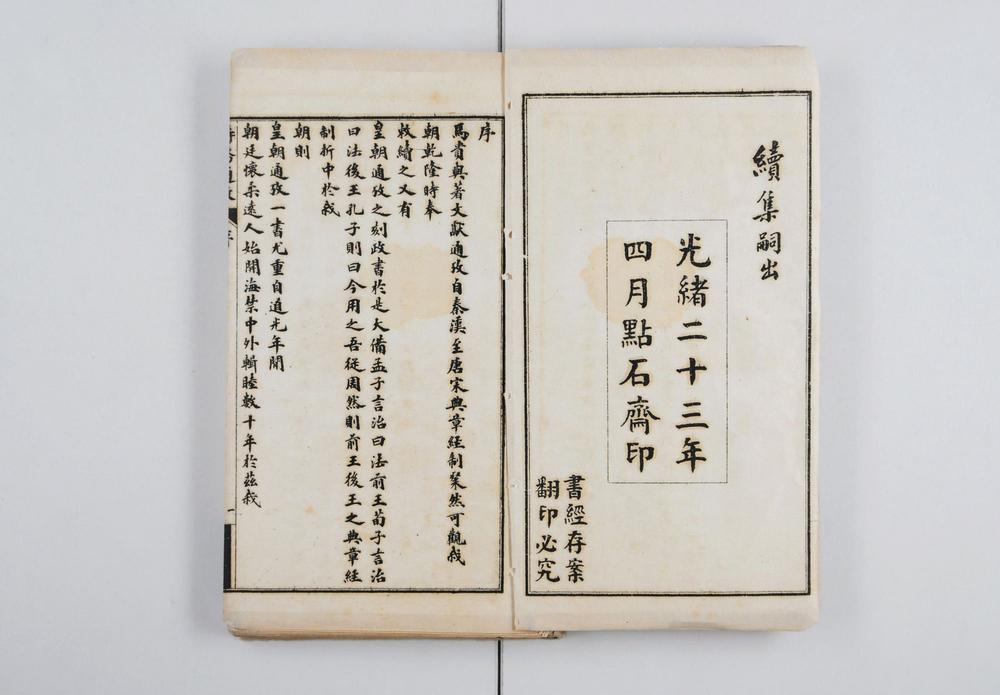 續集嗣出
光緒二十三年
四月點石齋印
書經存案
翻印必究
序
馬貴與著文獻通攷自秦漢至唐宋典章經制粲然可觀我
朝乾隆時奉
敕續之又有
皇朝通攷之刻政書於是大備孟子言治曰法前王荀子言治
曰法後王孔子則曰今用之吾從周然則前王後王之典章經
制折中於我
朝則
皇朝通攷一書尤重自道光年間
朝廷懷柔遠人始開海禁中外輯睦數十年於茲我
序
一